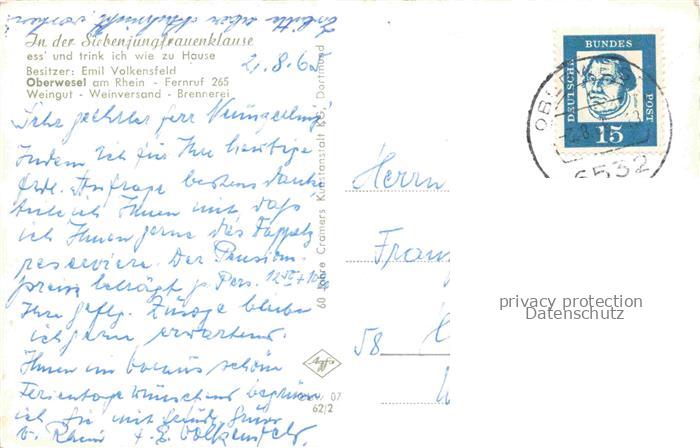 In der Siebenjungfrauenklause
ess' und trink ich wie zu Hause
Besitzer: Emil Volkensfeld
Oberwesel am Rhein - Fernruf 265
Weingut - Weinversand - Brennerei
2.8.62
Sehr geehrter Herr
Indem ich für Ihre heutige
frdl. Anfrage bestens danke
teile ich Ihnen mit, daß
ich Ihnen gerne das Doppelz.
reserviere. Der Pensions-
preis beträgt p. Pers.
Ihre geflg. Zusage
ich gerne erwartend.
Ihnen im voraus schöne
Ferientage wünschend
ich Sie mit
v. Rhein E. Volkensfeld.
60 Jahre Cramers Kunstanstalt KG, Dortmund
Agfa
07
62/2
DEUTSCHE
BUNDES
POST
15
6532
Herrn
58
privacy protection
Datenschutz